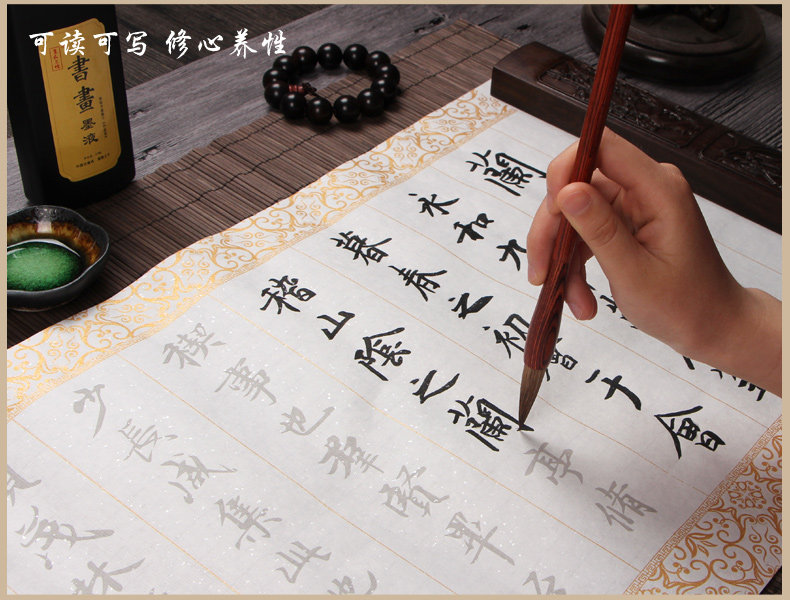 可读可写 修心养性
書畫
墨液
蘭
永和九
暮春之初會于會
稽山陰之蘭亭脩
禊事也羣賢畢
少長咸集此地
林